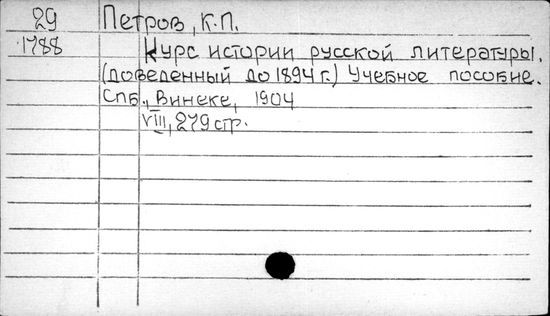 29 Петров, К.П.
1788 Курс истории русской литературы.
(доведенный до 1894 г.) Учебное пособие.
Спб., Винеке, 1904
VIII, 279 стр.